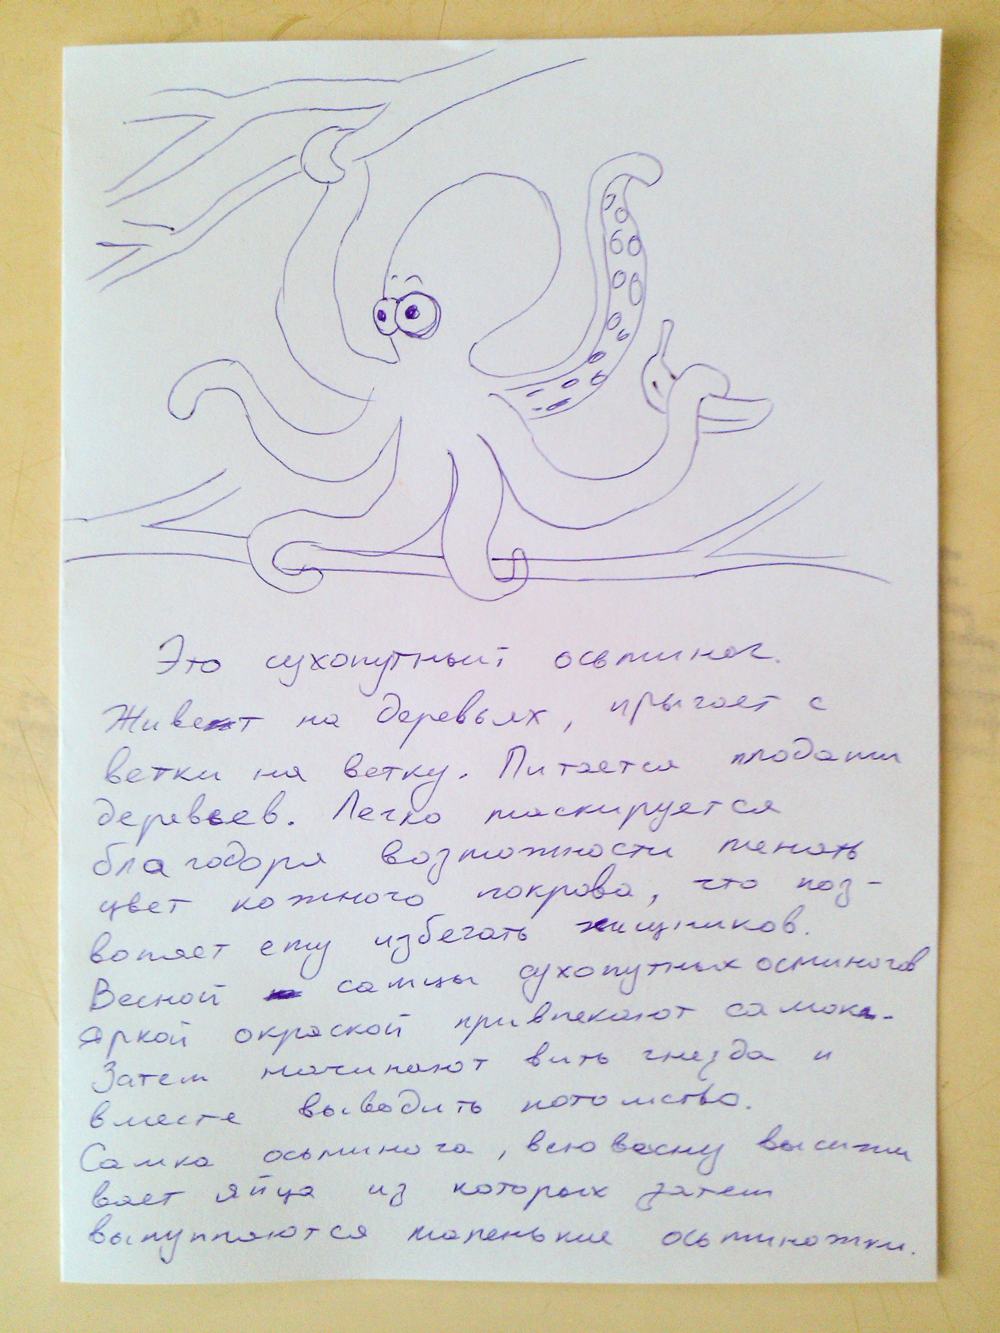 Это сухопутный осьминог.
Живет на деревьях, прыгает с
ветки на ветку. Питается плодами
деревьев. Легко маскируется
благодоря возможности менять
цвет кожного покрова, что поз-
воляет ему избегать хищников.
Весной самцы сухопутных осминогов
яркой окраской привлекают самок.
Затем начинают вить гнезда и
вместе выводить потомство.
Самка осьминога, всю весну высижи
вает яйца из которых затем
вылупляются маленькие осьминожки.